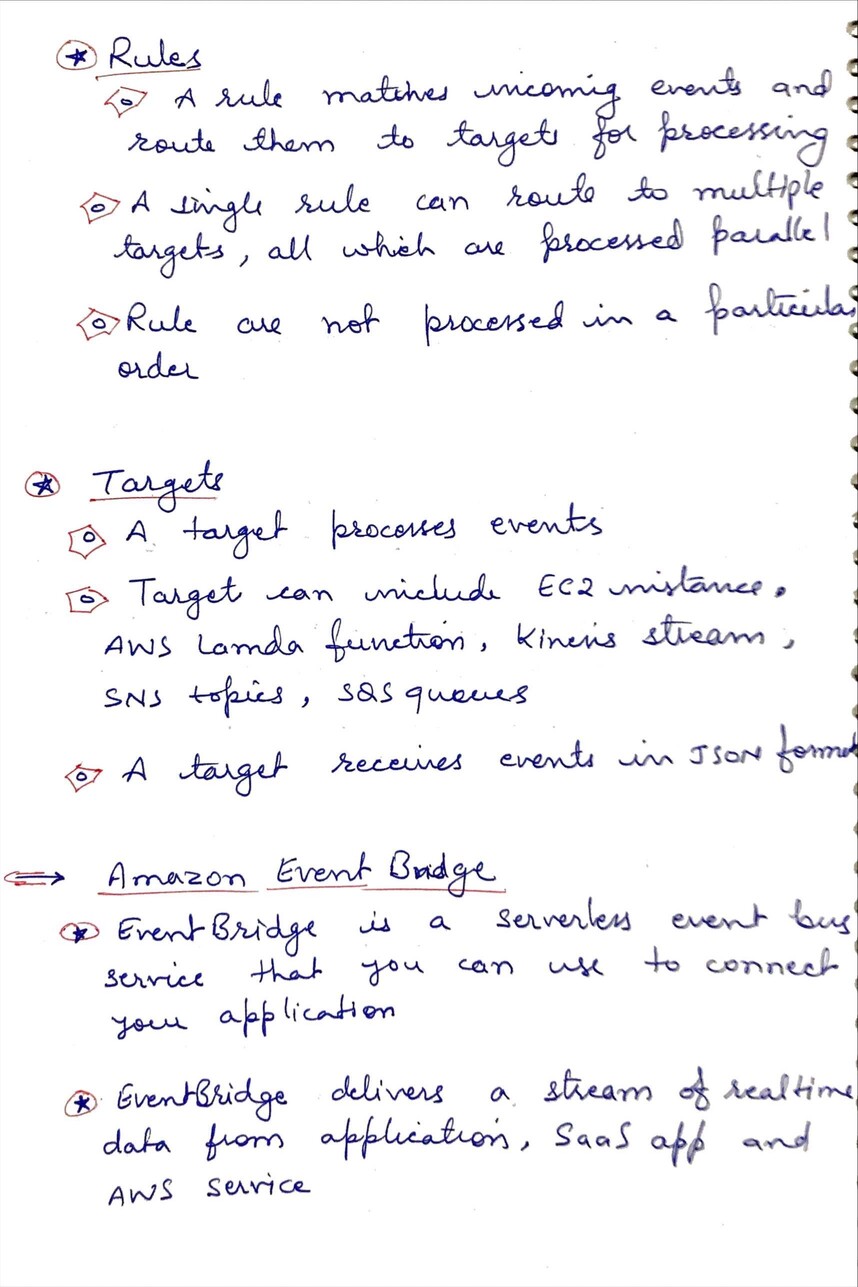 Rules
A rule matches incomig events and
route them to targets for processing
A single rule can route to multiple
targets, all which are processed parallel
Rule are not processed in a particular
order
Targets
A target processes events
Target can include EC2 instance.
AWS Lamda function, Kinesis stream,
SNS topics, SQS queues
A target receives events in JSON format
Amazon Event Bridge
EventBridge is a serverless event bus
service that you can use to connect
your application
EventBridge delivers a stream of realtime
data from application, SaaS app and
AWS service